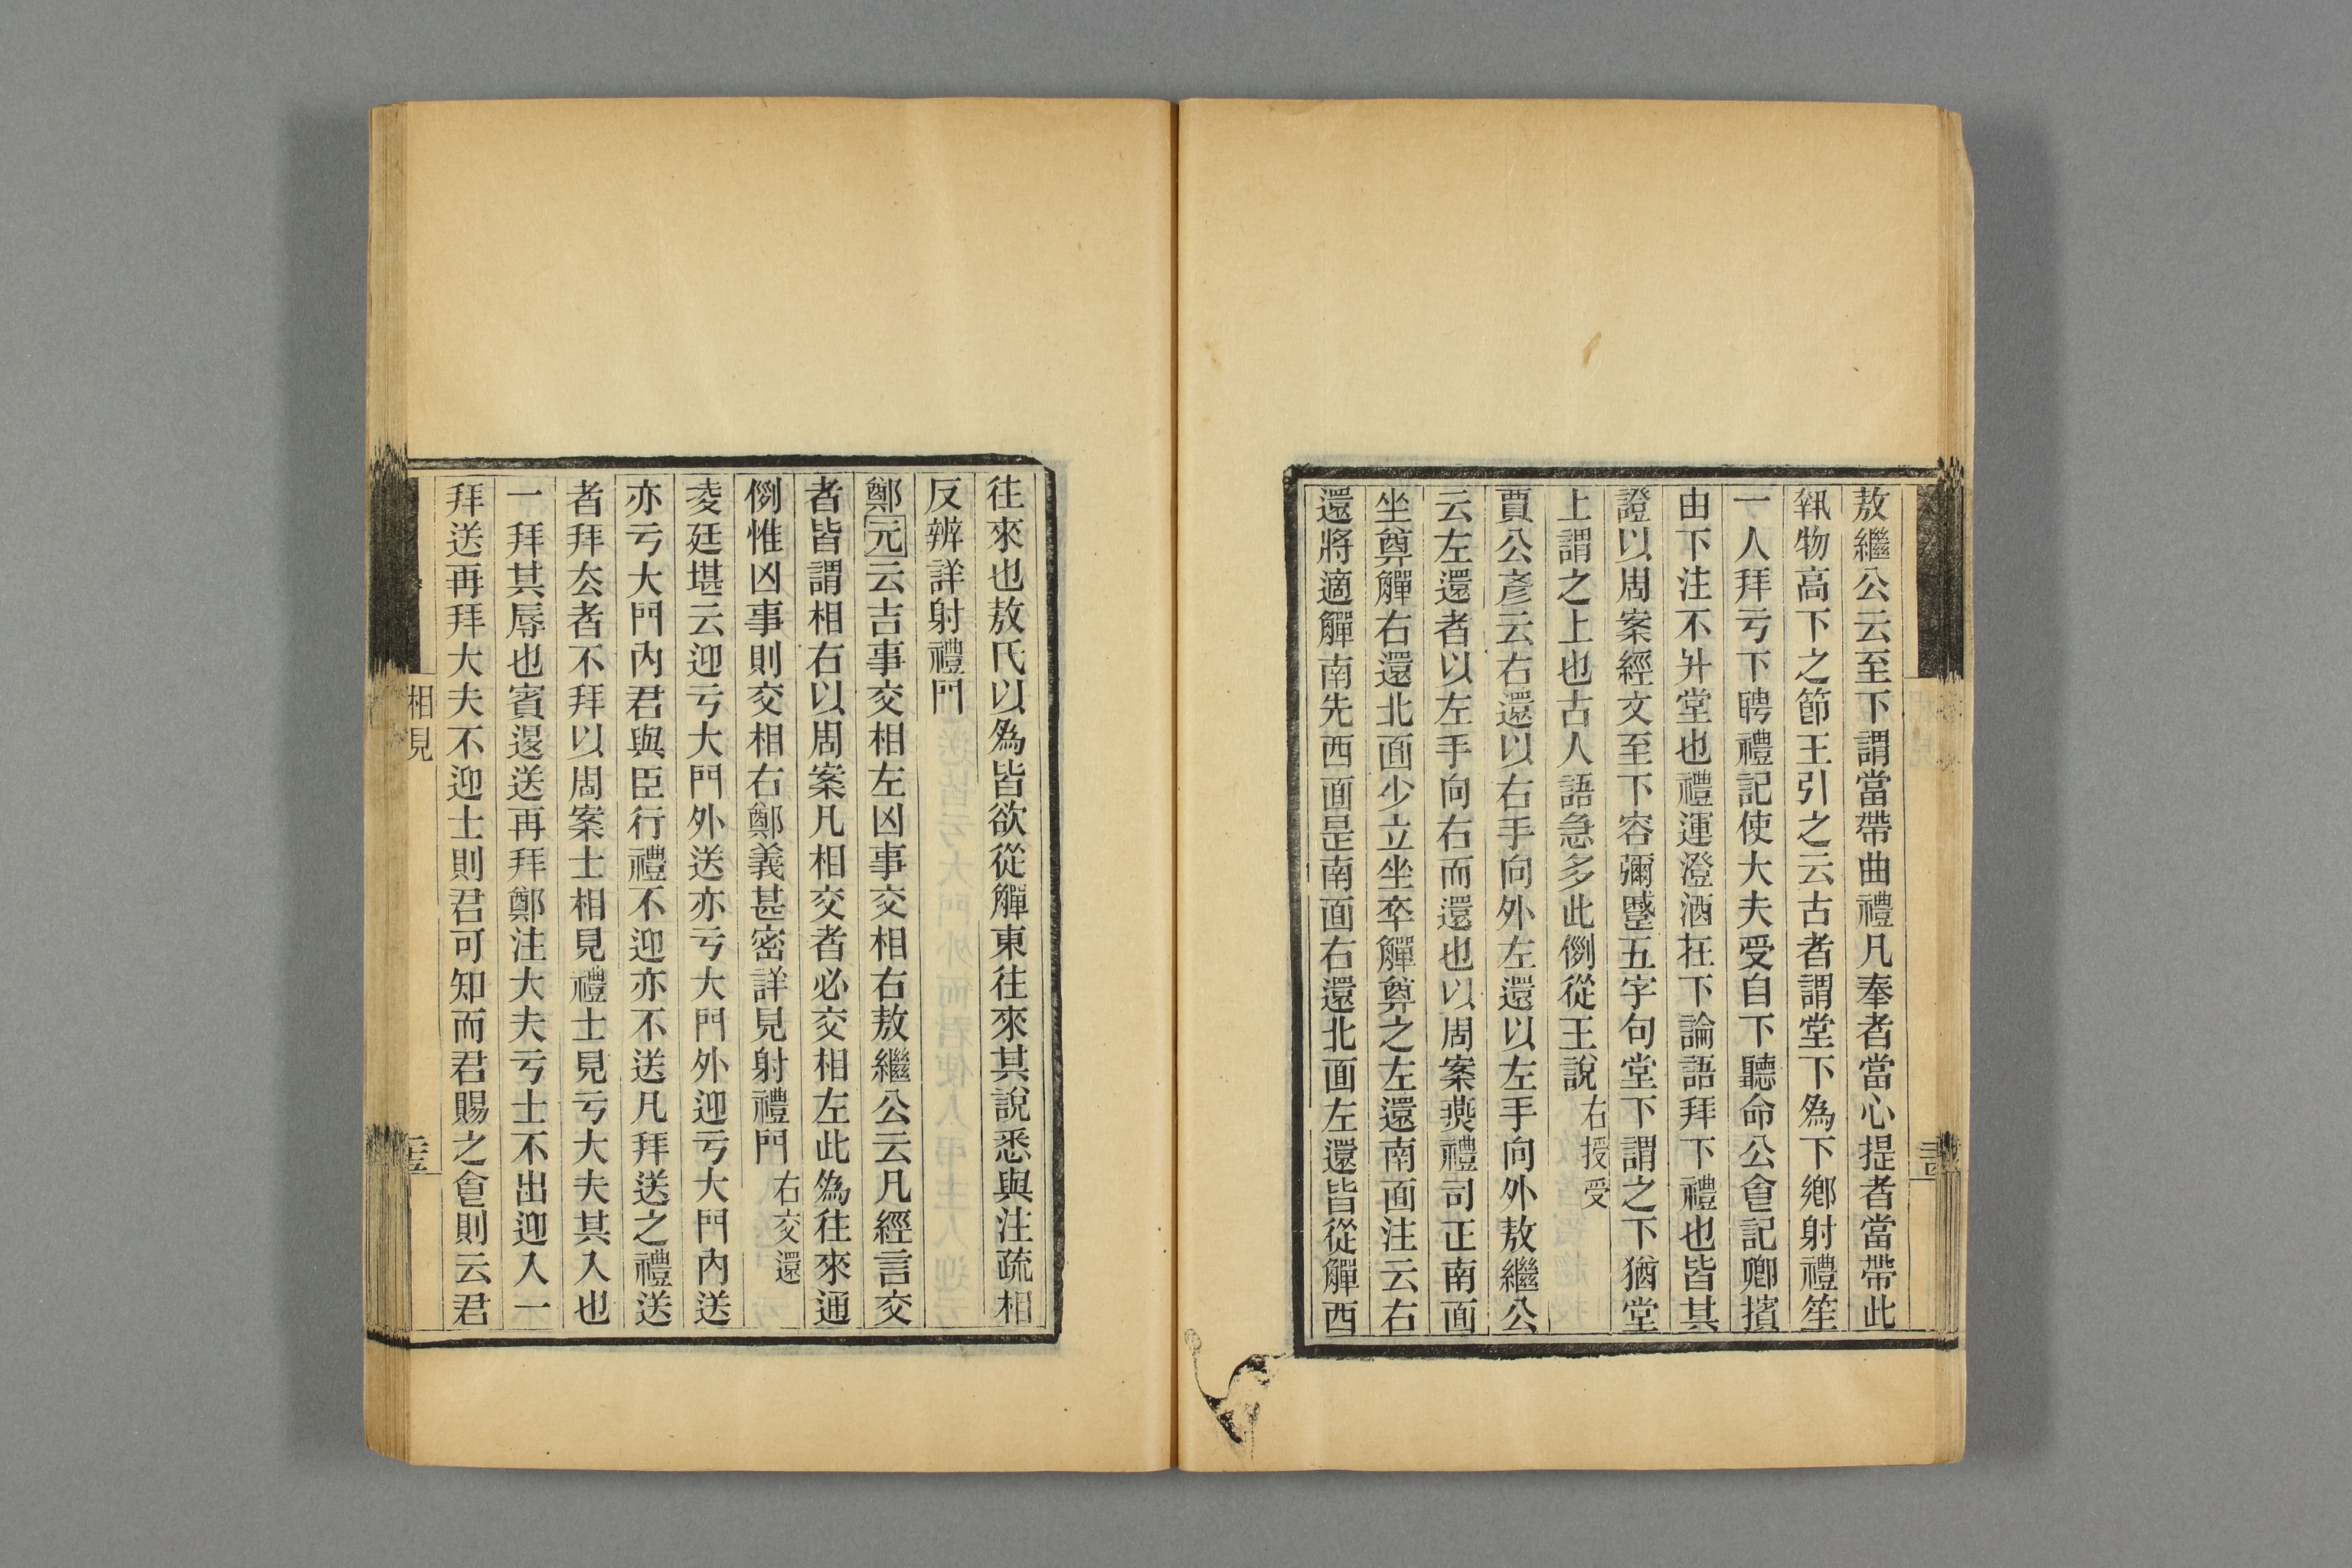 敖繼公云至下謂當帶曲禮凡奉者當心提者當帶此
執物高下之節王引之云古者謂堂下為下鄉射禮笙
一人拜亏下聘禮記使大夫受自下聽命公㑹記卿擯
由下注不升堂也禮運澄酒在下論語拜下禮也皆其
證以周案經文至下容彌蹙五字句堂下謂之下猶堂
上謂之上也古人語急多此例從王說右授受
賈公彥云右還以右手向外左還以左手向外敖繼公
云左還者以左手向右而還也以周案燕禮司正南面
坐奠觶右還北面少立坐卒觶奠之左還南面注云右
還將適觶南先西面是南面右還北面左還皆從觶西
往來也敖氏以為皆欲從觶東往來其說悉與注疏相
反辨詳射禮門
鄭元云吉事交相左凶事交相右敖繼公云凡經言交
者皆謂相右以周案凡相交者必交相左此為往來通
例惟凶事則交相右鄭義甚密詳見射禮門右交還
凌廷堪云迎亏大門外送亦亏大門外迎亏大門內送
亦亏大門內君與臣行禮不迎亦不送凡拜送之禮送
者拜去者不拜以周案士相見禮士見亏大夫其入也
一拜其辱也賓退送再拜鄭注大夫亏士不出迎入一
拜送再拜大夫不迎士則君可知而君賜之食則云君
相見